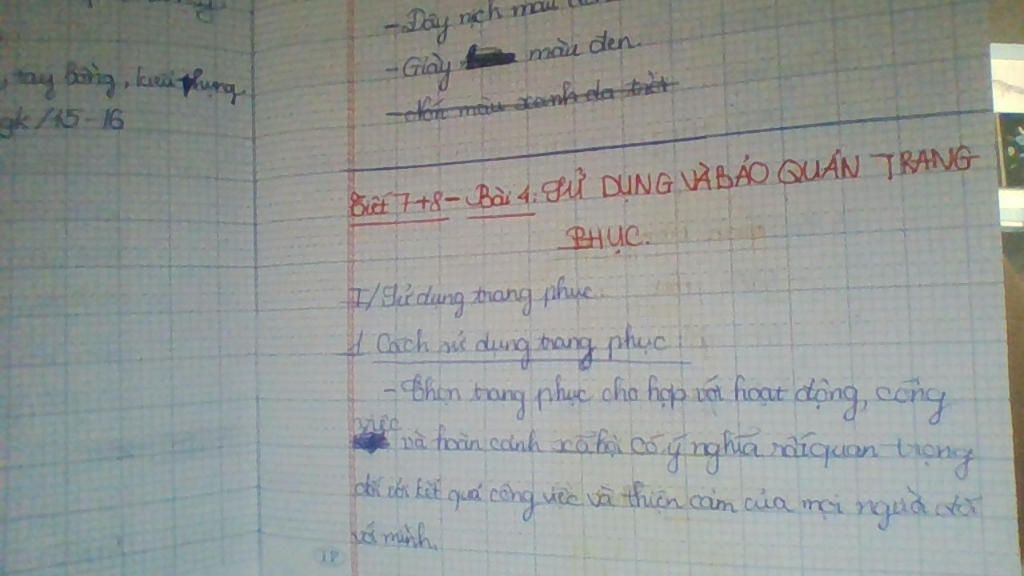 , tay bồng, kiểu phụng
gk/15-16
- Dây nịch màu
- Giày màu đen.
- nón màu xanh da trời
Tiết 7+8 - Bài 4: SỬ DỤNG VÀ BẢO QUẢN TRANG
PHỤC.
I/ Sử dụng trang phục.
1 Cách sử dụng trang phục
- Chọn trang phục cho hợp với hoạt động, công
việc và hoàn cảnh xã hội có ý nghĩa rất quan trọng
đối với kết quả công việc và thiện cảm của mọi người đối
với mình.